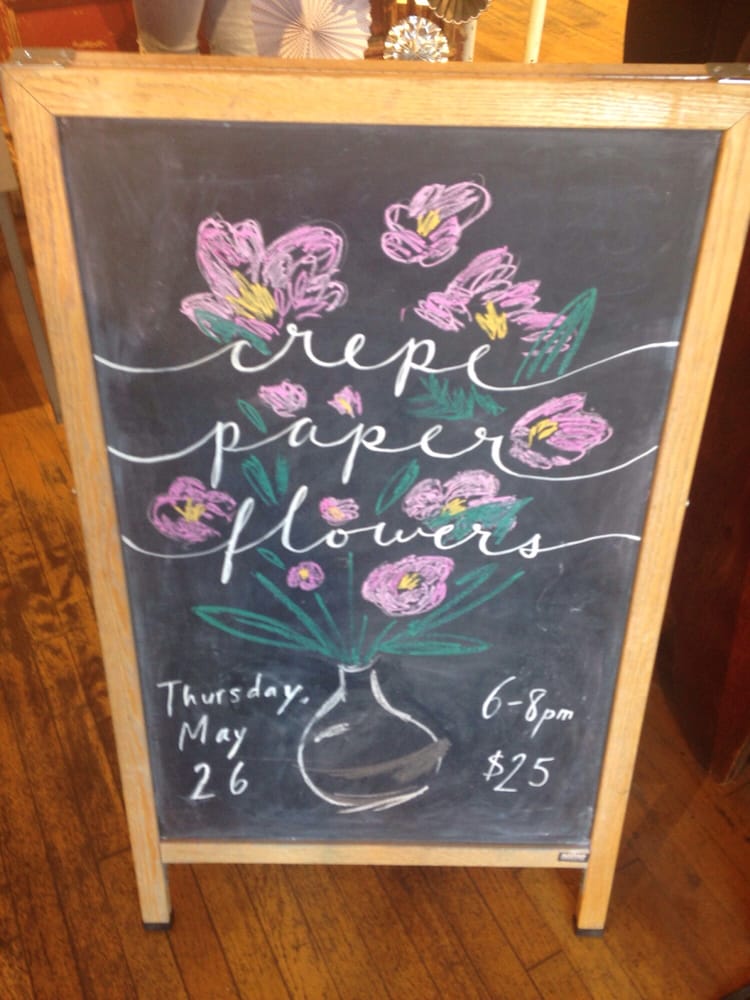 crepe
paper
flowers
Thursday,
May
26
6-8pm
$25